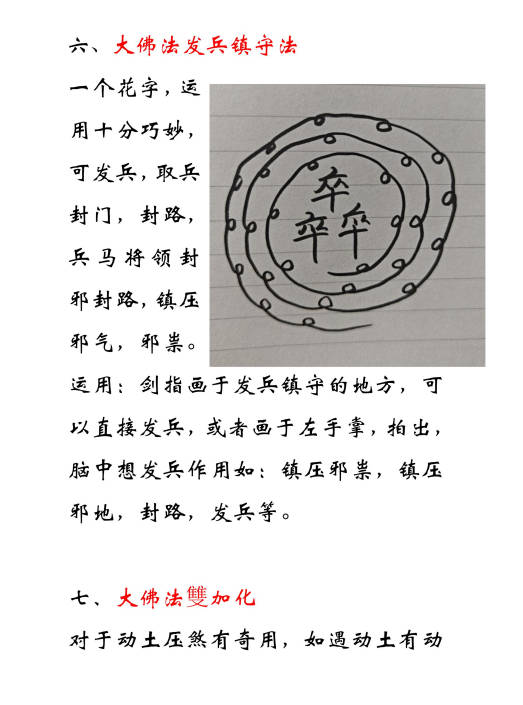 六、大佛法发兵镇守法
一个花字，运
用十分巧妙，
可发兵，取兵
封门，封路，
兵马将领封
邪封路，镇压
邪气，邪祟。
卒
卒卒
运用：剑指画于发兵镇守的地方，可
以直接发兵，或者画于左手掌，拍出，
脑中想发兵作用如：镇压邪祟，镇压
邪地，封路，发兵等。
七、大佛法雙加化
对于动土压煞有奇用，如遇动土有动